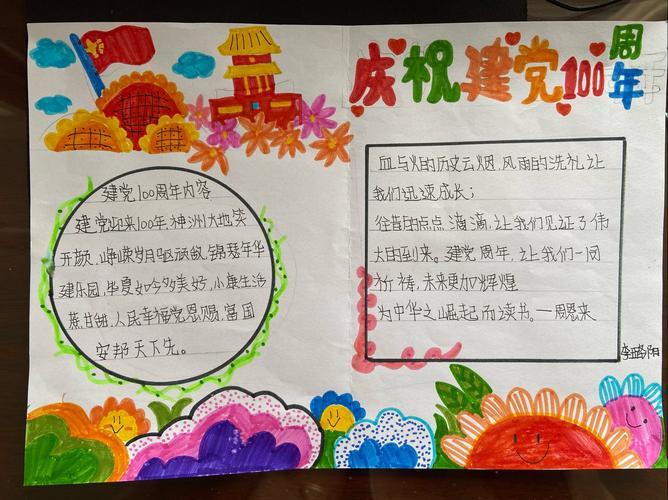 庆祝建党100周年
建党100周年内容
建党迎来100年,神洲大地笑
开颜,峥嵘岁月呕颂歌,锦瑟年华
建乐园,华夏如今多美好,小康生活
蔗甘甜,人民幸福党恩赐,富国
安邦天下先。
血与火的历史云烟,风雨的洗礼让
我们迅速成长;
往昔的点点滴滴,让我们见证了伟
大的到来。建党周年,让我们一同
祈祷,未来更加辉煌
为中华之崛起而读书。一周恩来